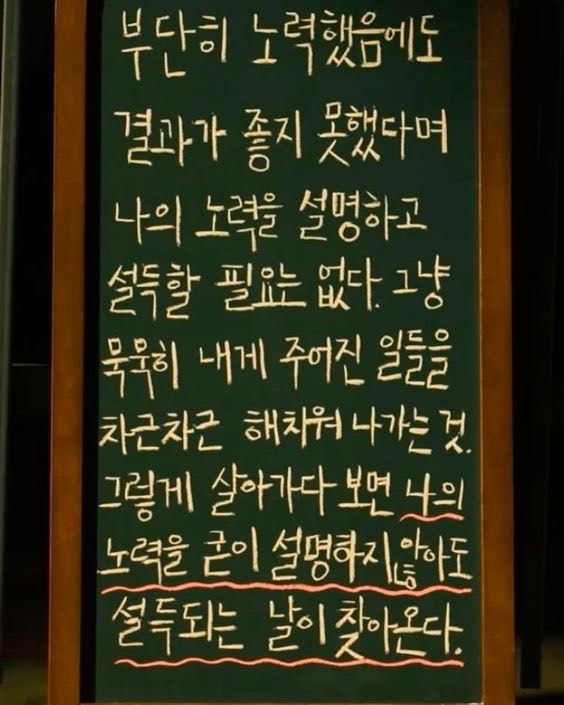 부단히 노력했음에도
결과가 좋지 못했다며
나의 노력을 설명하고
설득할 필요는 없다. 그냥
묵묵히 내게 주어진 일들을
차근차근 해치워 나가는 것.
그렇게 살아가다 보면 나의
노력을 굳이 설명하지 않아도
설득되는 날이 찾아온다.